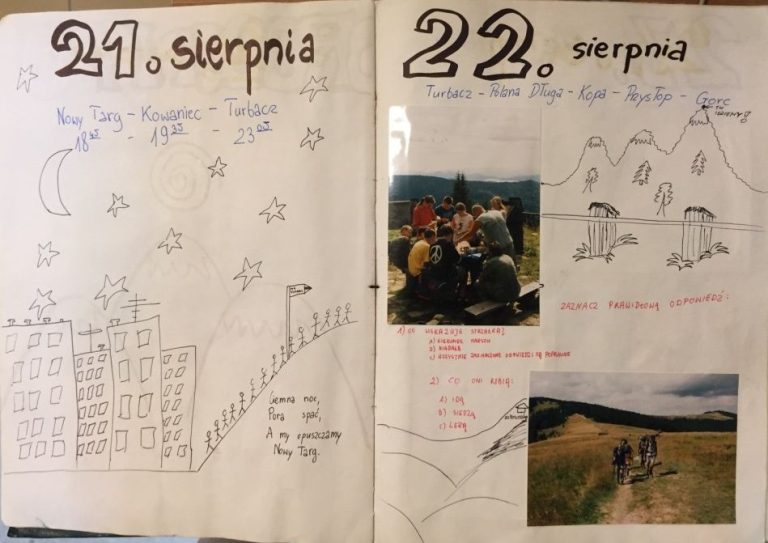 21. sierpnia
Nowy Targ - Kowaniec - Turbacz
18 45 - 19 35 - 23 05
Ciemna noc,
Pora spać,
A my opuszczamy
Nowy Targ.
22. sierpnia
Turbacz - Polana Długa - Kopa - Przysłop - Gorc
TU IDZIEMY!
ZAZNACZ PRAWIDŁOWĄ ODPOWIEDŹ:
1) CO WSKAZUJE STRZAŁKA?
A) KIERUNEK MARSZU
C) WSZYSTKIE ZAZNACZONE ODPOWIEDZI SĄ POPRAWNE
2) CO ONI ROBIĄ:
A) IDĄ
B) SIEDZĄ
C) LEŻĄ